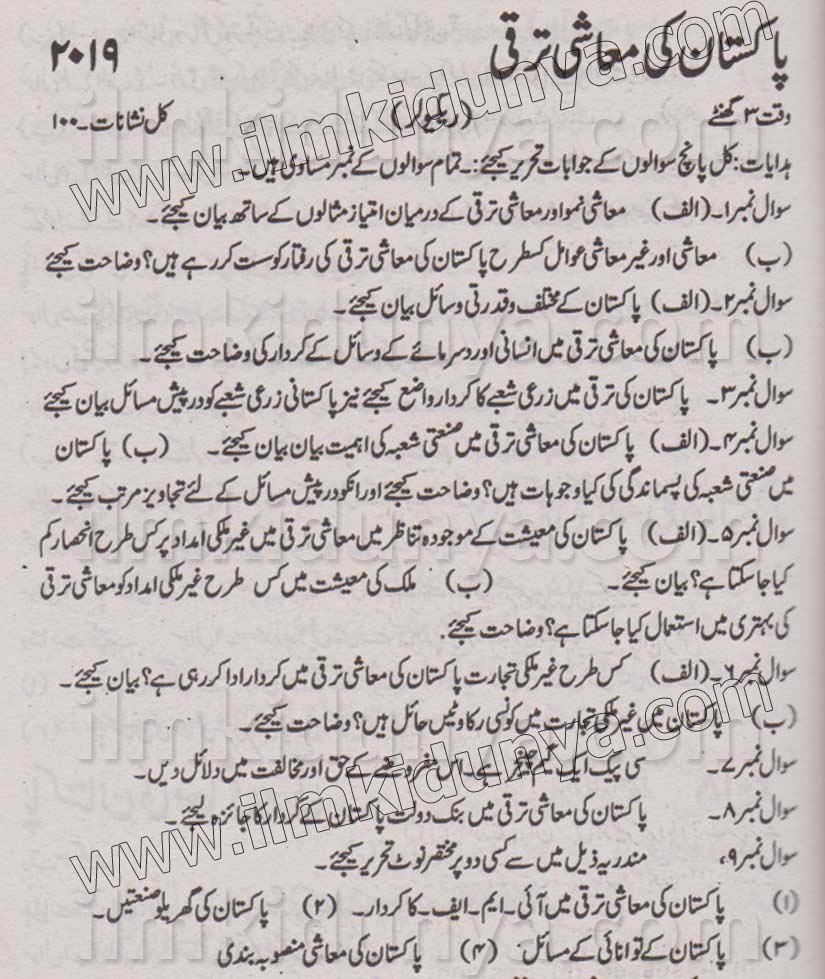 پاکستان کی معاشی ترقی ۲۰۱۹
وقت ۳ گھنٹے (ریگیولر) کل نشانات۔۱۰۰
ہدایات: کل پانچ سوالوں کے جوابات تحریر کیجئے:۔ تمام سوالوں کے نمبر مساوی ہیں۔
سوال نمبر۱۔ (الف) معاشی نمو اور معاشی ترقی کے درمیان امتیاز مثالوں کے ساتھ بیان کیجئے۔
(ب) معاشی اور غیر معاشی عوامل کسطرح پاکستان کی معاشی ترقی کی رفتار کو سست کر رہے ہیں؟ وضاحت کیجئے
سوال نمبر۲۔ (الف) پاکستان کے مختلف و قدرتی وسائل بیان کیجئے۔
(ب) پاکستان کی معاشی ترقی میں انسانی اور دسرمائے کے وسائل کے کردار کی وضاحت کیجئے۔
سوال نمبر۳۔ پاکستان کی ترقی میں زرعی شعبے کا کردار واضع کیجئے نیز پاکستانی زرعی شعبے کو درپیش مسائل بیان کیجئے
سوال نمبر۴۔ (الف) پاکستان کی معاشی ترقی میں صنعتی شعبہ کی اہمیت بیان بیان کیجئے۔ (ب) پاکستان
میں صنعتی شعبہ کی پسماندگی کی کیا وجوہات ہیں؟ وضاحت کیجئے اور انکو درپیش مسائل کے لئے تجاویز مرتب کیجئے۔
سوال نمبر۵۔ (الف) پاکستان کی معیشت کے موجودہ تناظر میں معاشی ترقی میں غیر ملکی امداد پر کس طرح انحصار کم
کیا جا سکتا ہے؟ بیان کیجئے۔ (ب) ملک کی معیشت میں کس طرح غیر ملکی امداد کو معاشی ترقی
کی بہتری میں استعمال کیا جا سکتا ہے؟ وضاحت کیجئے.
سوال نمبر۶۔ (الف) کس طرح غیر ملکی تجارت پاکستان کی معاشی ترقی میں کردار ادا کر رہی ہے؟ بیان کیجئے۔
(ب) پاکستان میں غیر ملکی تجارت میں کونسی رکاوٹیں حائل ہیں؟ وضاحت کیجئے۔
سوال نمبر۷۔ سی پیک ایک گیم چینجر ہے۔ اس مفروضے کے حق اور مخالفت میں دلائل دیں۔
سوال نمبر۸۔ پاکستان کی معاشی ترقی میں بنک دولت پاکستان کے کردار کا جائزہ لیجئے۔
سوال نمبر۹، مندریہ ذیل میں سے کسی دو پر مختصر نوٹ تحریر کیجئے۔
(۱) پاکستان کی معاشی ترقی میں آئی۔ایم۔ایف۔کا کردار۔ (۲) پاکستان کی گھریلو صنعتیں۔
(۳) پاکستان کے توانائی کے مسائل (۴) پاکستان کی معاشی منصوبہ بندی
www.ilmkidunya.com
www.ilmkidunya.com
ilmkidunya.com
ilmkidunya.com
ilmkidunya.com
ilmkidunya.com
ilmkidunya.com